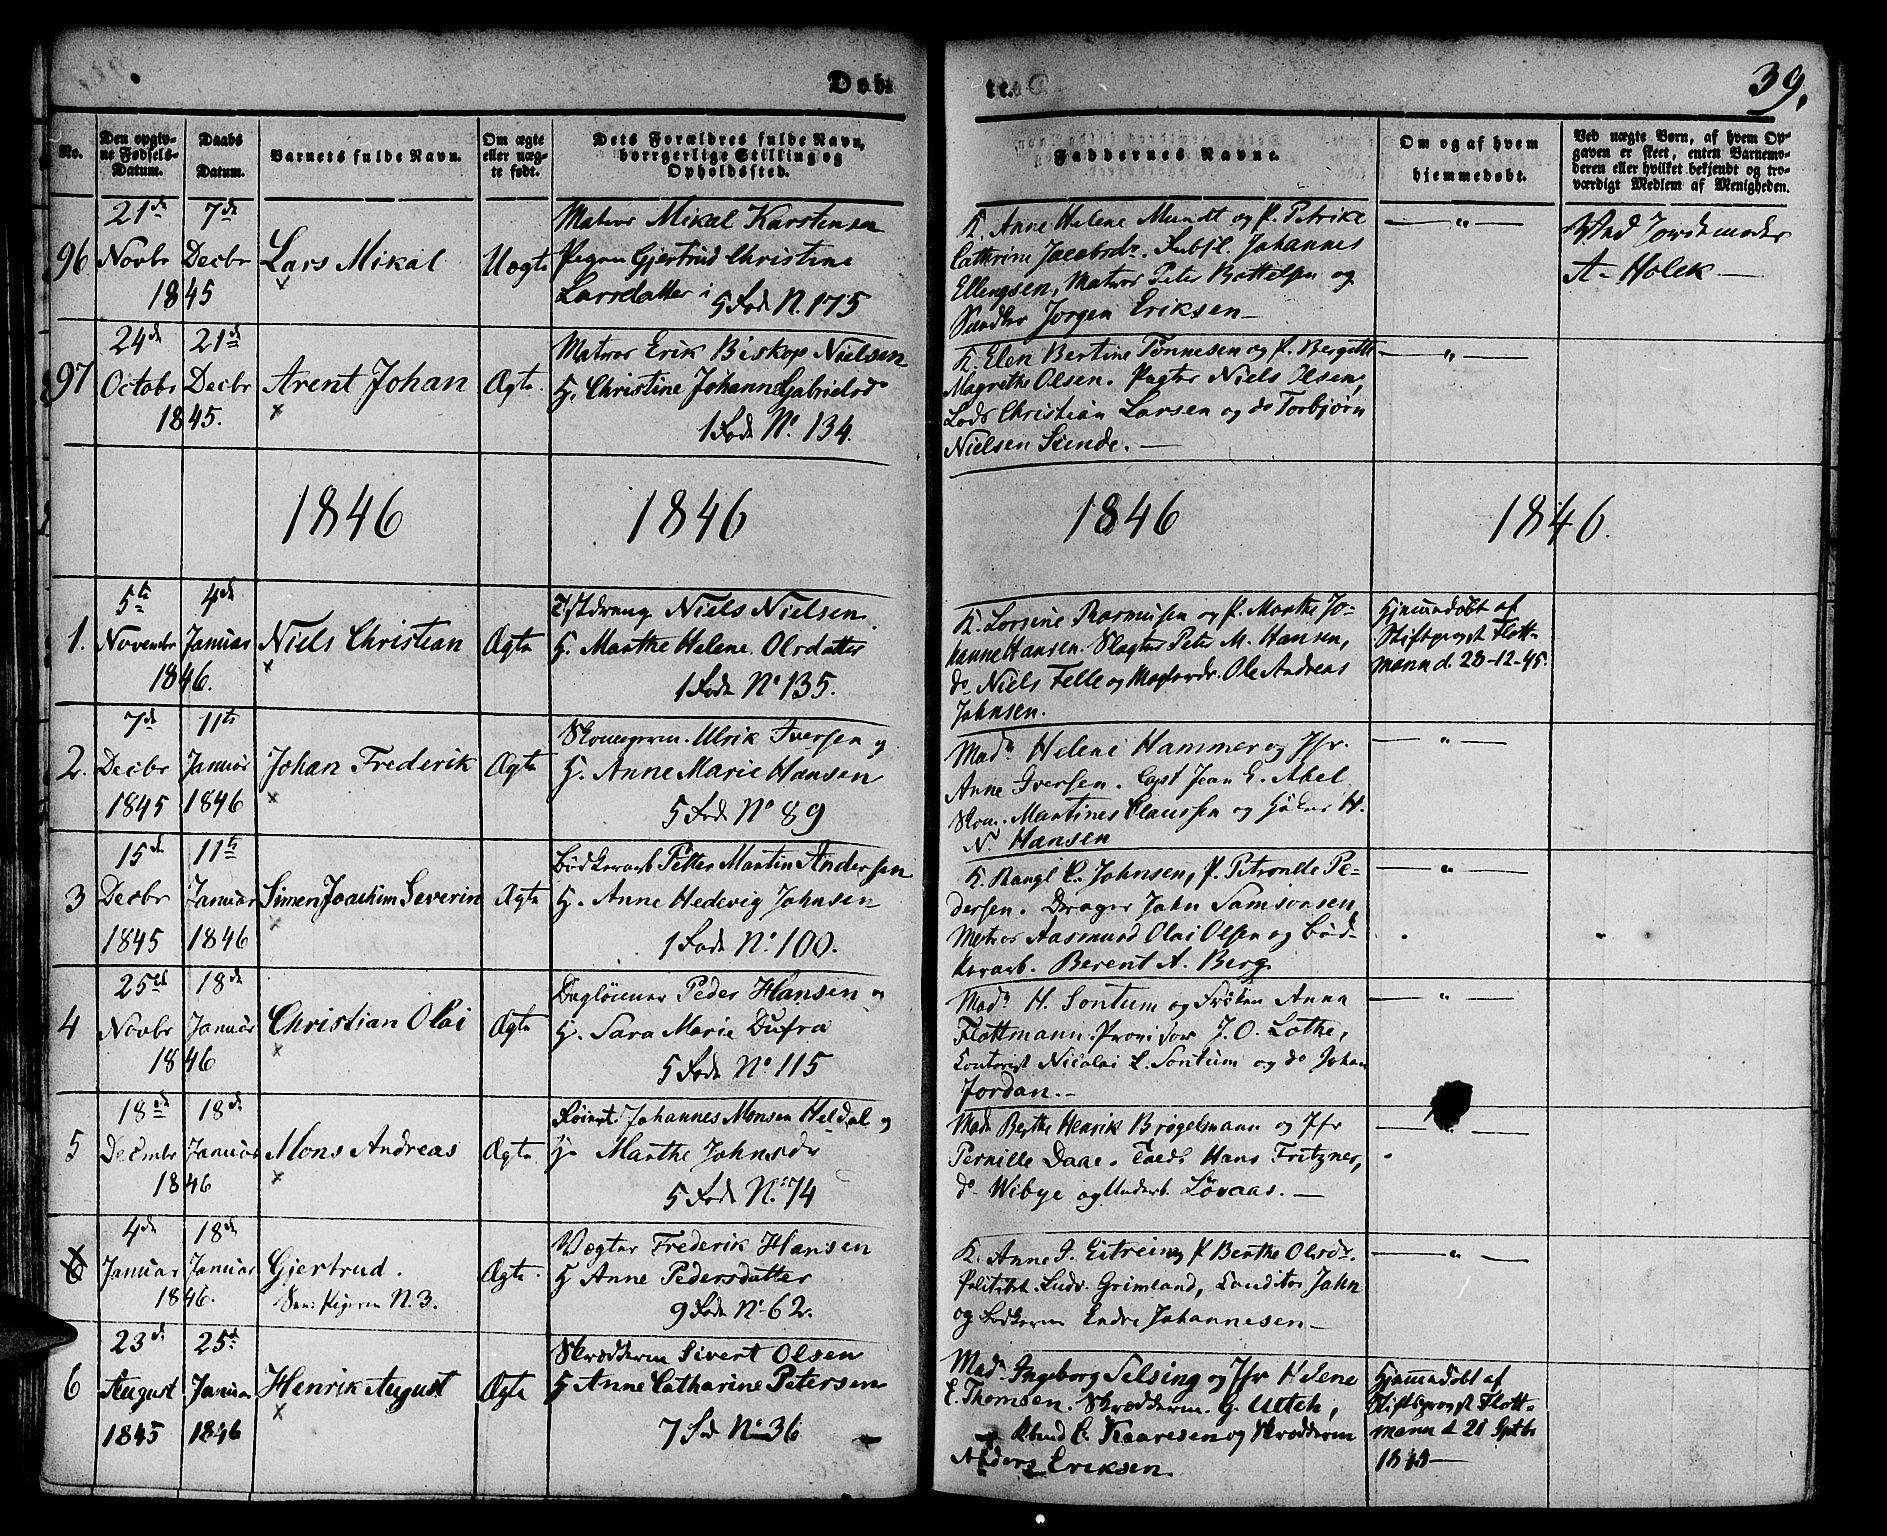 Døb-
te.
39.
No.
Den opgiv-
ne Fødsels-
Datum.
Daabs
Datum.
Barnets fulde Navn.
Om ægte
eller uæg-
te født.
Dets Forældres fulde Navn,
borgerlige Stilling og
Opholdssted.
Faddernes Navne.
Om og af hvem
hjemmedøbt.
Ved uægte Børn, af hvem Op-
gaven er skeet, enten Barnemo-
deren eller hvilket bekjendt og tro-
værdigt Medlem af Menigheden.
96
21de
Novbr
7de
Decbr
1845
Lars Mikal
Uægte
Matros Mikal Karstensen
Pigen Gjertrud Christine
Larsdatter i 5 Rode N. 175
K. Anne Helene Mundt og P. Petrike
Cathrine Jacobsdr. Johannes
Ellengsen, Matros Peter Bottelsen og
Jørgen Eriksen —
— " —
Ved Jordemoder
A. Holck —
97
24de
Octobr
21de
Decbr
1845.
Arent Johan
Ægte.
Matros Erik Biskop Nielsen
H. Christine Johanne Gabrielsdr
1 Rode No. 134.
K. Elen Bertine Tønnesen og P. Bergitte
Magrethe Olsen. Niels Olsen,
Lods Christian Larsen og do Torbjørn
Nielsen Sunde. —
— " —
1846
1846
1846
1846.
1.
5te
Novembr
4de
Januar
1846.
Niels Christian
Ægte
Niels Nielsen
H. Marthe Helene Olsdatter
1 Rode No 135.
K. Lorsine Rasmussen og P. Marthe Jo-
hanne Hansen. Slagter Peter M. Hansen,
do Niels Felle og Ole Andreas
Johnsen.
Hjemmedøbt af
Stiftsprovst Flott-
mann d. 28-12-45.
2.
7de
Decbr
1845
11te
Januar
1846
Johan Frederik
Ægte
Skomagerm. Ulrik Iversen og
H. Anne Marie Hansen
5 Rode No 89
Mad. Helene Hammer og Jfr.
Anne Iversen. Capt Jean E. Abel
Skom. Martines Claussen og H.
N. Hansen
— " —
3
15de
Decbr
1845
11te
Januar
1846
Simen Joachim Severin
Ægte
Bødkerarb Petter Martin Andersen
H. Anne Hedevig Johnsen
1 Rode No. 100.
K. Rangl C. Johnsen, P. Petronlle Pe-
dersen. Drager John Samsonsen,
Matros Aasmund Olai Olsen og Bød-
kerarb. Berent A. Berg
— " —
4
25de
Novbr
18de
Januar
1846
Christian Olai
Ægte
Dagleiener Peder Hansen og
H. Sara Marie Dufra
5 Rode No. 115
Mad. H. Sontum og Frøken Anna
Flottmann. Provisor J. O. Lothe,
Contorist Nicolai C. Sontum og do Johan
Jordan. —
— " —
5
18de
Decmbr
18de
Januar
1846
Mons Andreas
Ægte
Johannes Monsen Heldal og
H. Marthe Johnsdr
5 Rode No. 74
Mad. Berthe Henrik Brøgelmann og Jfr
Pernille Daae. Hans Fritzner,
do Wibye og Underb. Løvaas. —
— " —
6
4de
Januar
18de
Januar
1846.
Gjertrud.
N. 3.
Ægte.
Vægter Frederik Hansen
H Anne Pedersdatter
9 Rode No. 62.
K. Anne J. Eitrein og P Berthe Olsdr.
Politibt. Ludv. Grimland, Conditor John
og Endre Johannesen —
— " —
6
23de
August
1845
25de
Januar
1846
Henrik August
Ægte
Skrædderm Sivert Olsen
H Anne Catharine Petersen
7 Rode No. 36
Mad. Ingeborg Selsing og Jfr Helene
E. Thomsen. Skrædderm. G. Ultch,
Knud C. Kaaresen og Skrædderm
Anders Eriksen.
Hjemmedøbt af
Stiftsprovst Flott-
mann d. 21 Septbr
1845 —